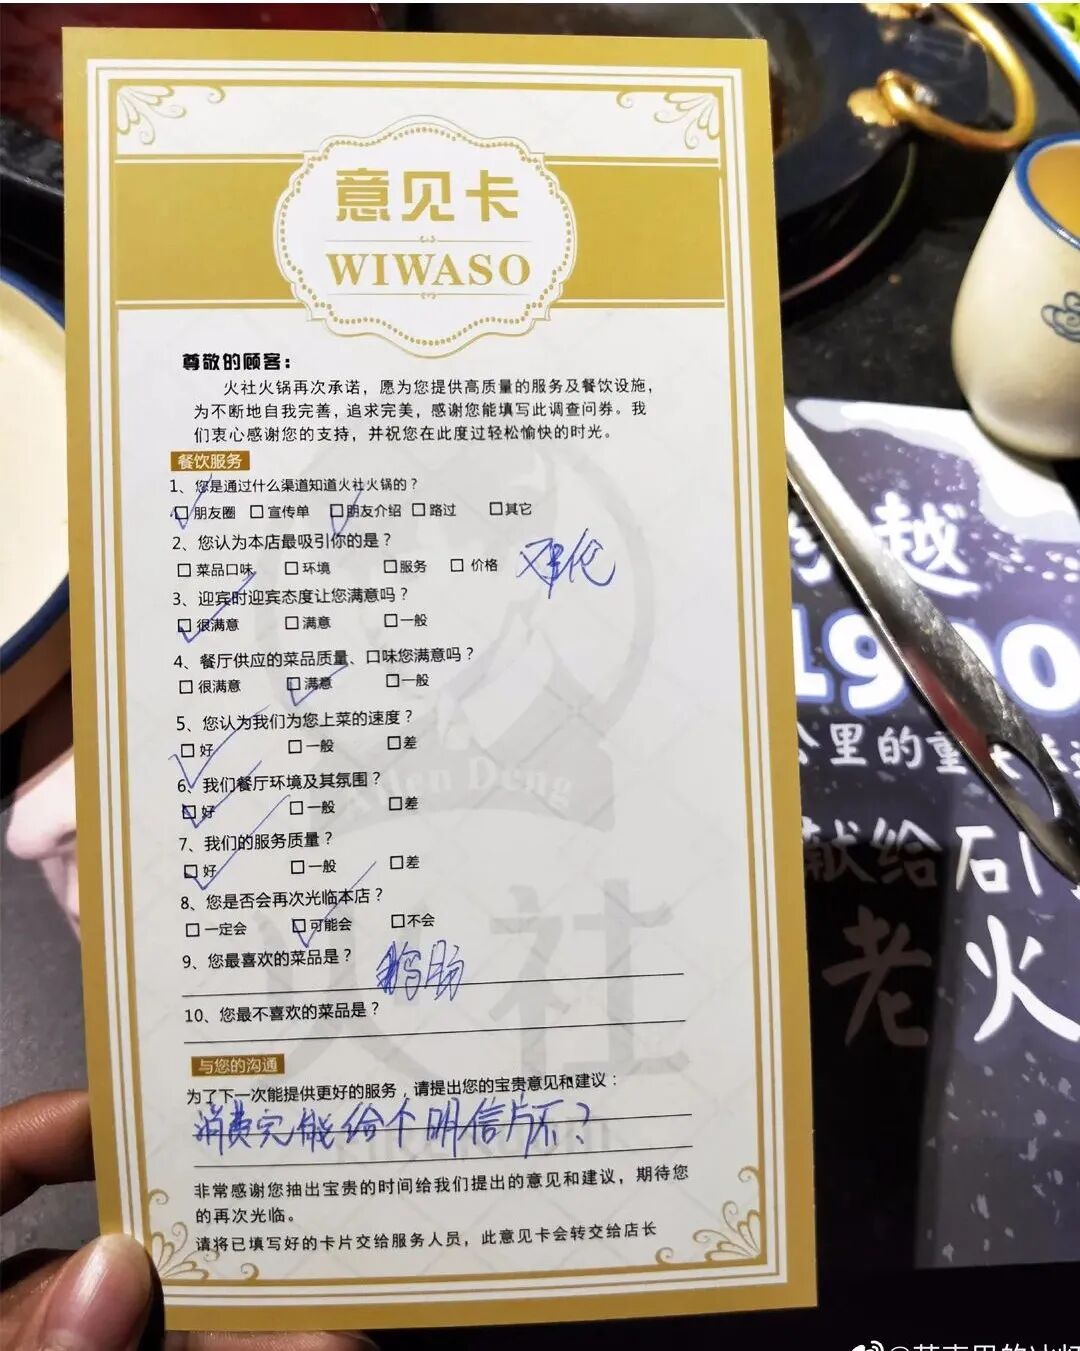 意见卡
WIWASO
尊敬的顾客：
火社火锅再次承诺，愿为您提供高质量的服务及餐饮设施，
为不断地自我完善，追求完美，感谢您能填写此调查问券。我
们衷心感谢您的支持，并祝您在此度过轻松愉快的时光。
餐饮服务
1、您是通过什么渠道知道火社火锅的？
☑朋友圈 □宣传单 ☑朋友介绍 □路过 □其它
2、您认为本店最吸引你的是？
□菜品口味 □环境 □服务 □价格 邓伦
3、迎宾时迎宾态度让您满意吗？
☑很满意 □满意 □一般
4、餐厅供应的菜品质量、口味您满意吗？
□很满意 ☑满意 □一般
5、您认为我们为您上菜的速度？
☑好 □一般 □差
6、我们餐厅环境及其氛围？
☑好 □一般 □差
7、我们的服务质量？
☑好 □一般 □差
8、您是否会再次光临本店？
□一定会 ☑可能会 □不会
9、您最喜欢的菜品是？
10、您最不喜欢的菜品是？
与您的沟通
为了下一次能提供更好的服务，请提出您的宝贵意见和建议：
消费完能给个明信片不？
非常感谢您抽出宝贵的时间给我们提出的意见和建议，期待您
的再次光临。
请将已填写好的卡片交给服务人员，此意见卡会转交给店长
Allen Deng
火社
越
1900
公里的重
献给
老火